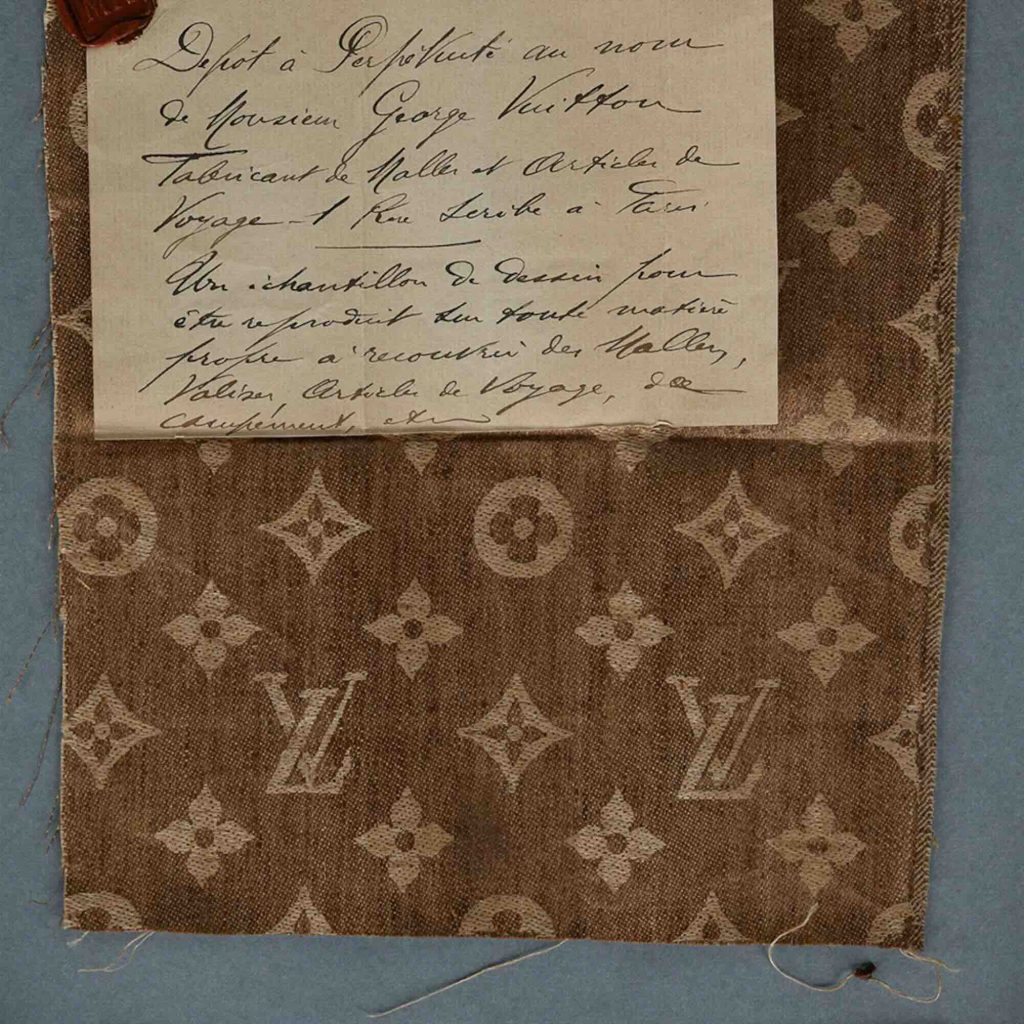 Dépôt à Perpétuité au nom
de Monsieur George Vuitton
Fabricant de Malles et Articles de
Voyage _ 1 Rue Scribe à Paris
Un échantillon de dessin pour
être reproduit sur toute matière
propre à recouvrir des Malles,
Valises, Articles de Voyage, de
campement, etc
LV LV